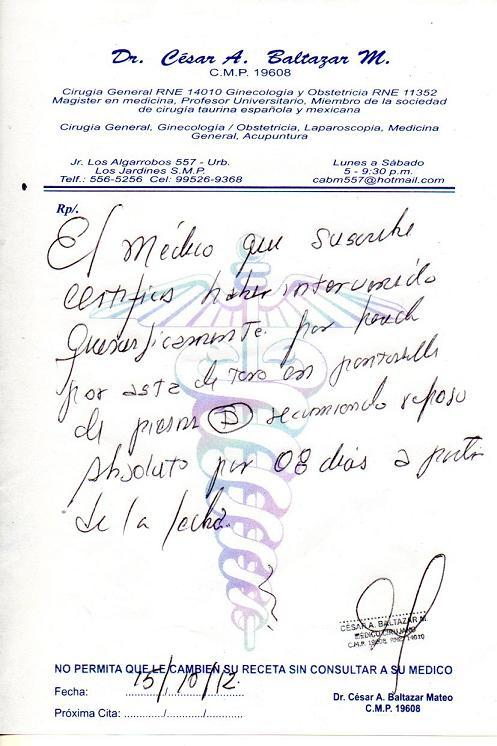 Dr. César A. Baltazar M.
C.M.P. 19608
Cirugía General RNE 14010 Ginecología y Obstetricia RNE 11352
Magister en medicina, Profesor Universitario, Miembro de la sociedad
de cirugía taurina española y mexicana
Cirugía General, Ginecología / Obstetricia, Laparoscopia, Medicina
General, Acupuntura
Jr. Los Algarrobos 557 - Urb.
Los Jardines S.M.P.
Telf.: 556-5256 Cel: 99526-9368
Lunes a Sábado
5 - 9:30 p.m.
cabm557@hotmail.com
Rp/.
El Médico que suscribe
certifica haber intervenido
Quirurgicamente por
por asta de toro en pantorrilla
de pierna D recomiendo reposo
absoluto por 08 días a partir
de la fecha.
CÉSAR A. BALTAZAR M.
MEDICO CIRUJANO
C.M.P. 19608 RNE 14010
NO PERMITA QUE LE CAMBIEN SU RECETA SIN CONSULTAR A SU MEDICO
Fecha: 15/10/12
Próxima Cita: ............/............/............
Dr. César A. Baltazar Mateo
C.M.P. 19608